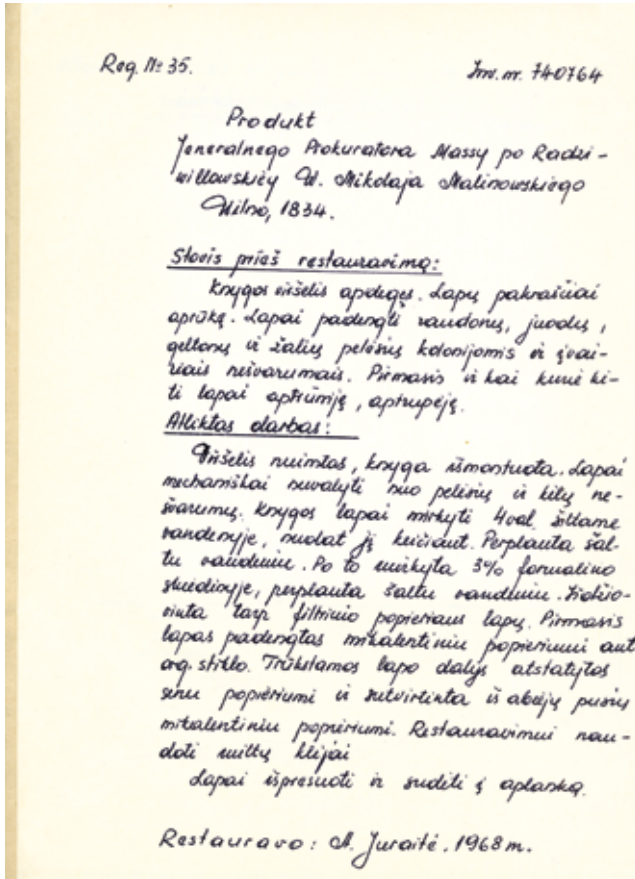 Reg. № 35. Inv. nr. 740764
Produkt
Jeneralnego Prokuratora Massy po Radzi-
willowskiey W. Mikolaja Malinowskiego
Wilno, 1834.
Stovis prieš restauravimą:
Knygos viršelis apdegęs. Lapų pakraščiai
aprūkę. Lapai padengti raudonų, juodų,
geltonų ir žalių pelėsių kolonijomis ir įvai-
riais nešvarumais. Pirmasis ir kai kurie ki-
ti lapai aptrūniję, aptrupėję.
Atliktas darbas:
Viršelis nuimtas, knyga išmontuota. Lapai
mechaniškai nuvalyti nuo pelėsių ir kitų ne-
švarumų. Knygos lapai mirkyti 4 val. šiltame
vandenyje, nuolat jį keičiant. Perplauta šal-
tu vandeniu. Po to mirkyta 3% formalino
skiedinyje, perplauta šaltu vandeniu. Išdžio-
vinta tarp filtrinio popieriaus lapų. Pirmasis
lapas padengtas mikalentiniu popieriumi ant
org. stiklo. Trūkstamos lapo dalys atstatytos
senu popieriumi ir sutvirtinta iš abiejų pusių
mikalentiniu popieriumi. Restauravimui nau-
doti miltų klijai
Lapai išpresuoti ir sudėti į aplanką.
Restauravo: A. Juraitė. 1968 m.